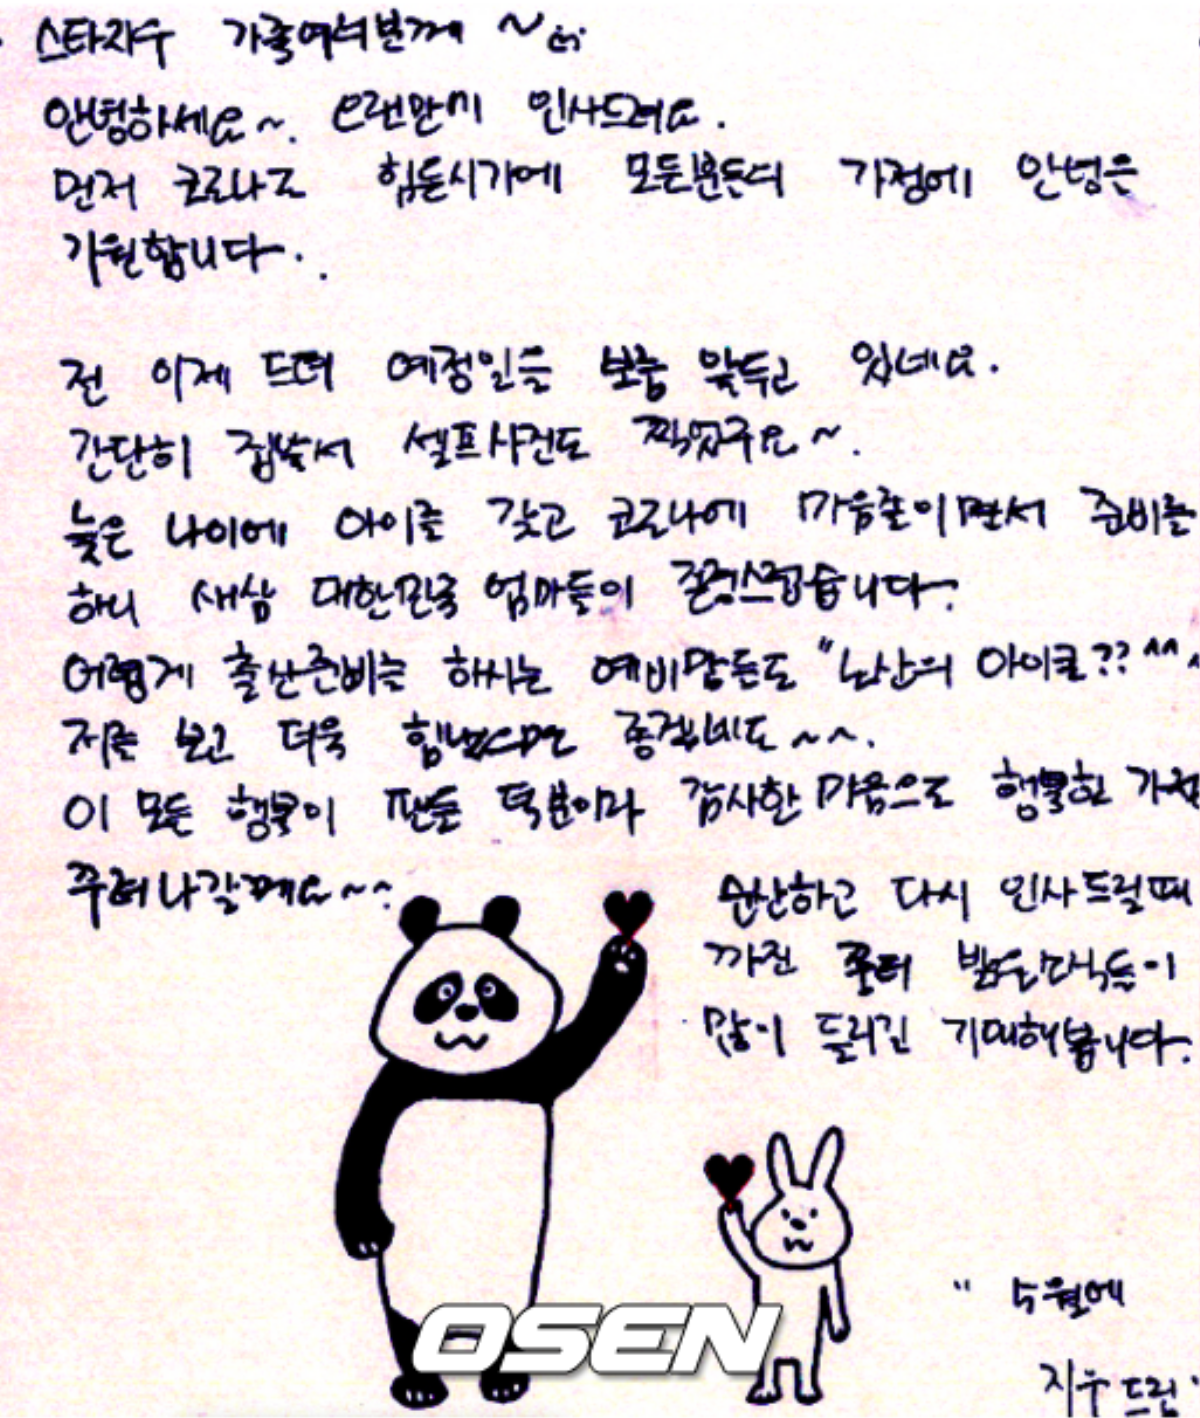 스타지우 가족여러분께 ~
안녕하세요~. 오랜만에 인사드려요.
먼저 코로나로 힘든시기에 모든분들의 가정에 안녕을
기원합니다..
전 이제 드뎌 예정일을 보름 앞두고 있네요.
간단히 집앞서 셀프사진도 찍었구요~.
늦은 나이에 아이를 갖고 코로나에 마음졸이면서 준비를
하니 새삼 대한민국 엄마들이 존경스럽습니다.
어렵게 출산준비를 하시는 예비맘들도 "노산의 아이콘?? ^^
저를 보고 더욱 힘냈으면 좋겠네요~~.
이 모든 행복이 팬들 덕분이라 감사한 마음으로 행복한 가정
꾸려나갈께요~~.
순산하고 다시 인사드릴때
까진 좀더 밝은소식들이
많이 들리길 기대해봅니다.
" 5월에
지우 드림"
OSEN